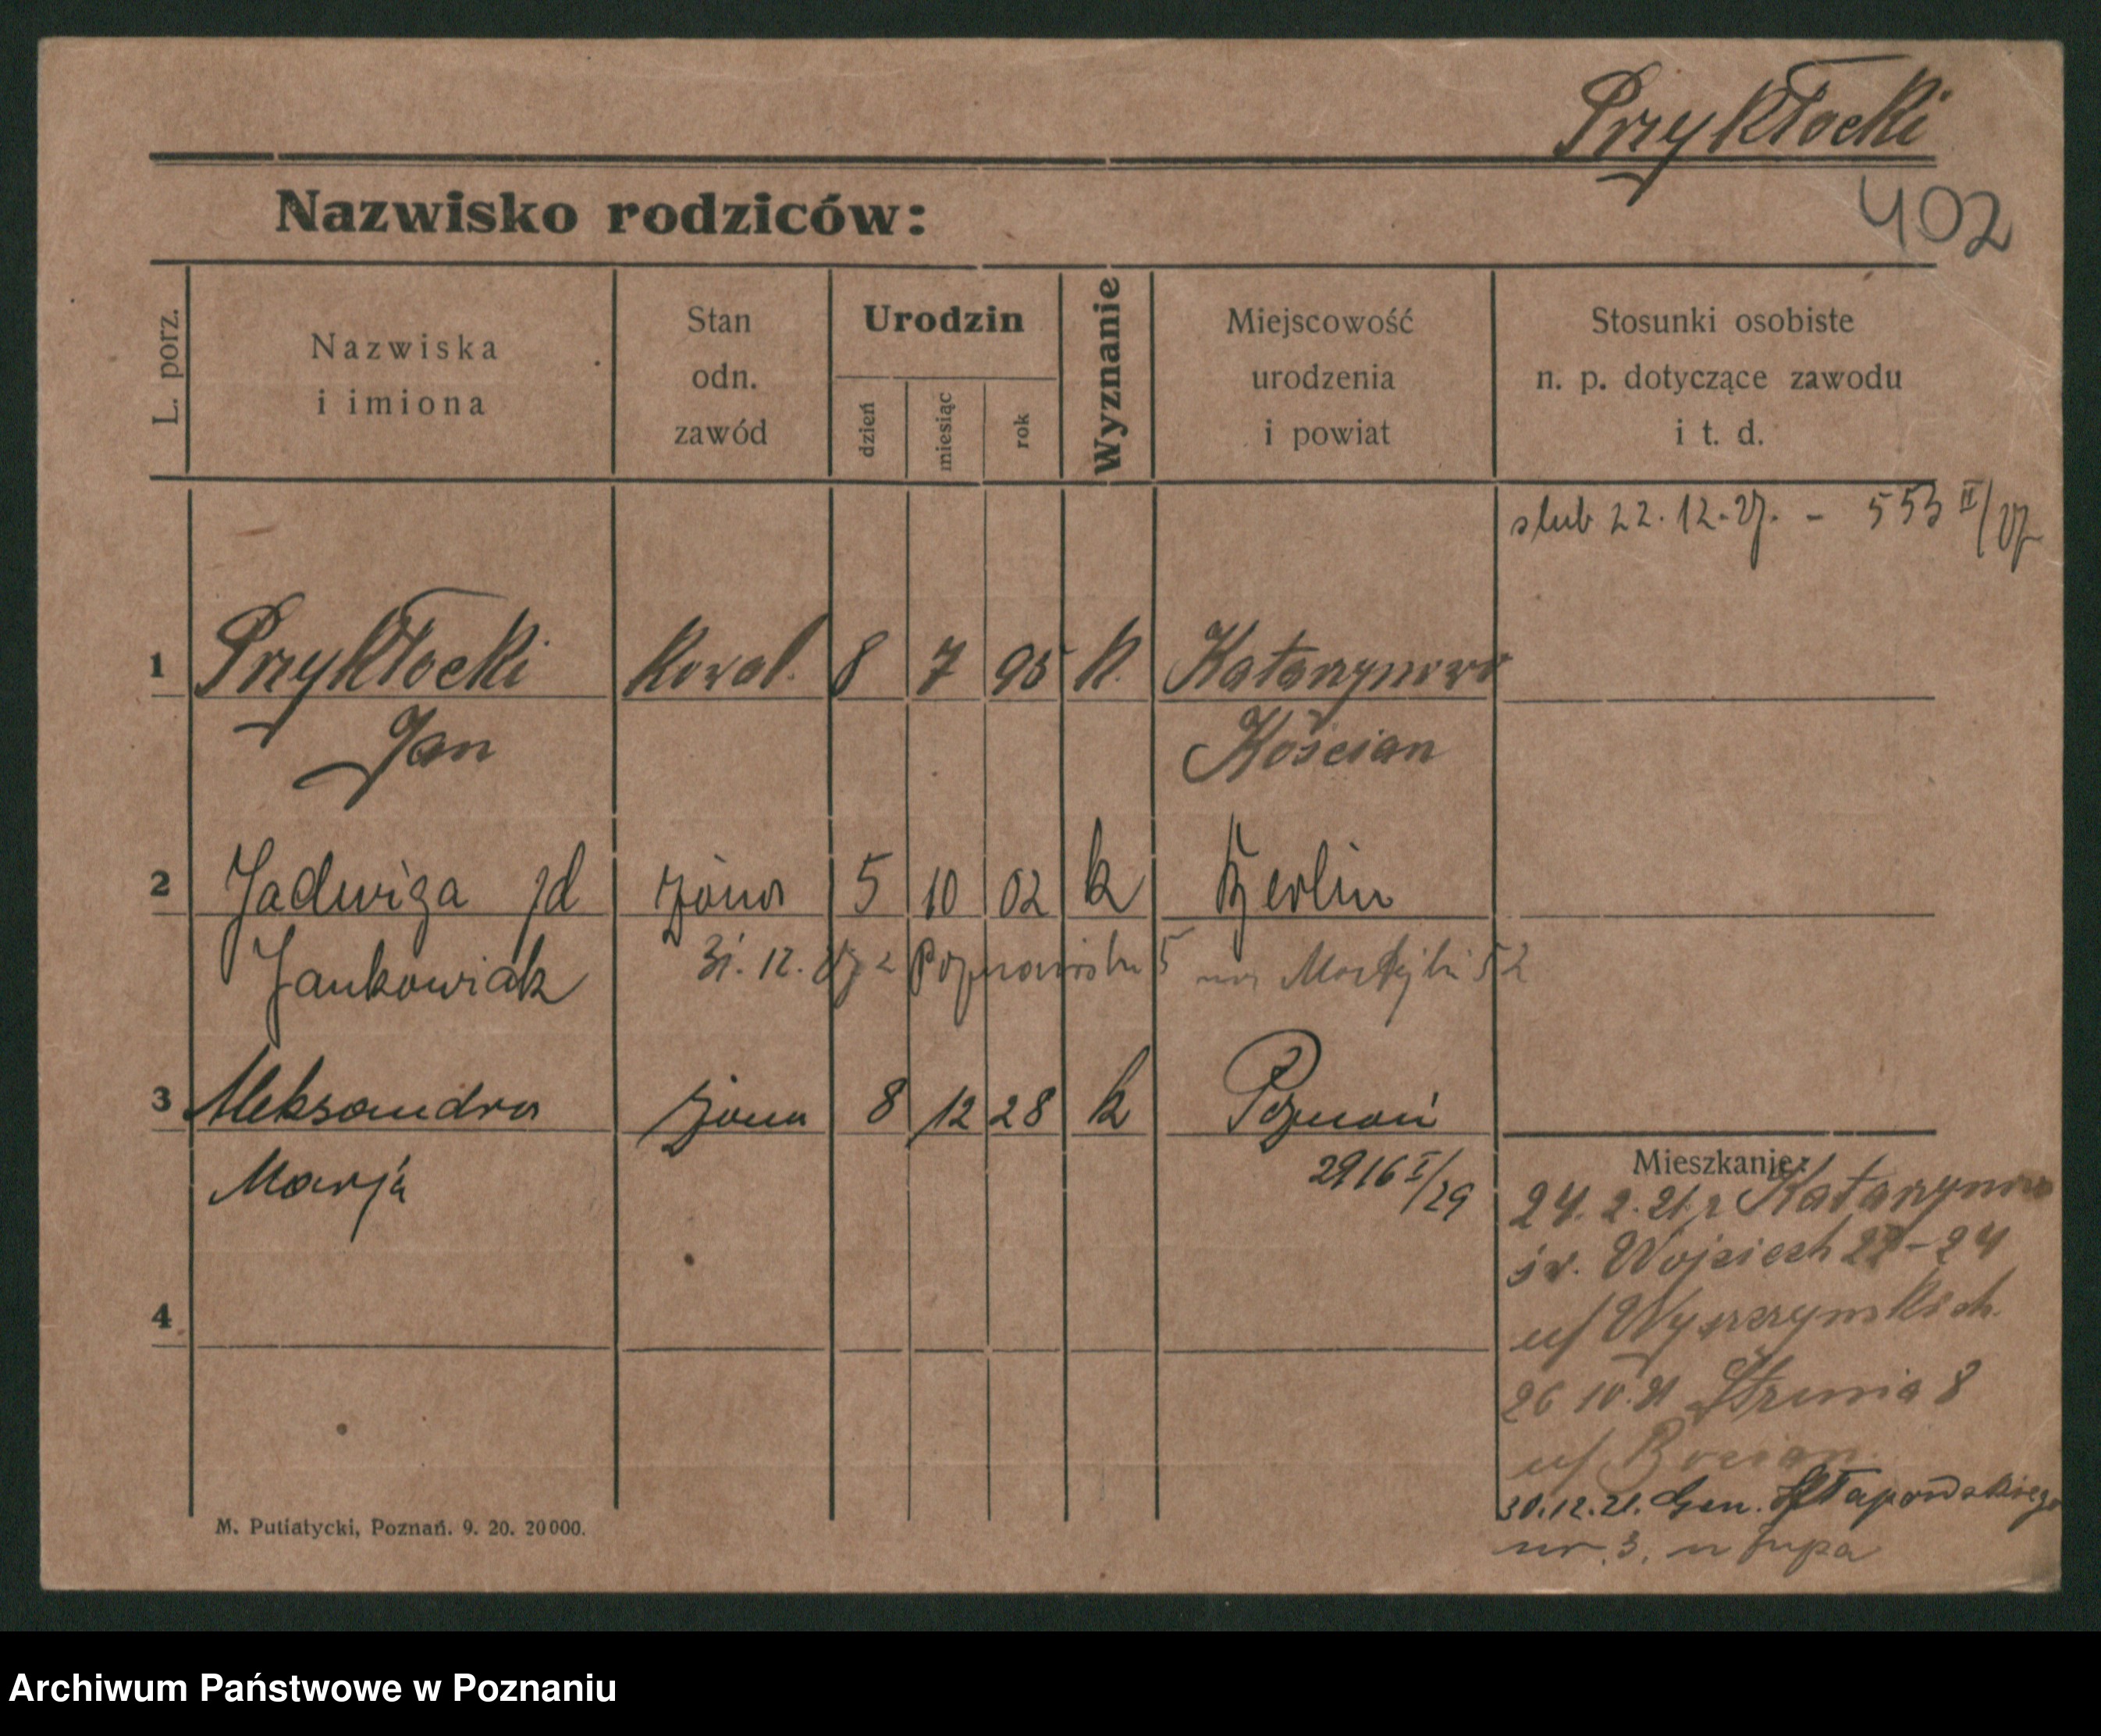 Przykłocki
Nazwisko rodziców:
402
L. porz.
Nazwiska
i imiona
Stan
odn.
zawód
Urodzin
dzień
miesiąc
rok
Wyznanie
Miejscowość
urodzenia
i powiat
Stosunki osobiste
n. p. dotyczące zawodu
i t. d.
slub 22.12.27. - 553 II/27
1 Przykłocki Kowal. 8 7 95 k. Katarzynowo
Jan Kościan
2 Jadwiga żona 5 10 02 k Berlin
Jankowiak
31. 12. 27 z 5 52
3 Aleksandra żona 8 12 28 k Poznań
Marja 2916 I/29
Mieszkanie:
24. 2. 21. z Katarzynowo
św. Wojciech -24
u/
4
26 10. 21 8
u/ Bocian
30.12.21. Gen. Chłapowskiego
nr. 3. u Zupa
M. Putiatycki, Poznań. 9. 20. 20000.
Archiwum Państwowe w Poznaniu